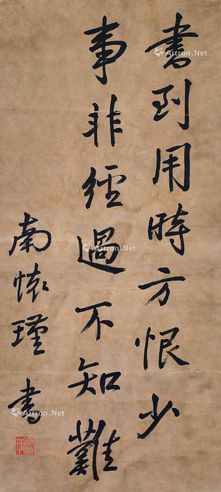 書到用時方恨少
事非經過不知難
南懷瑾書
Artron.Net
Artron.Net
Artron.Net
Artron.Net
Artron.Net